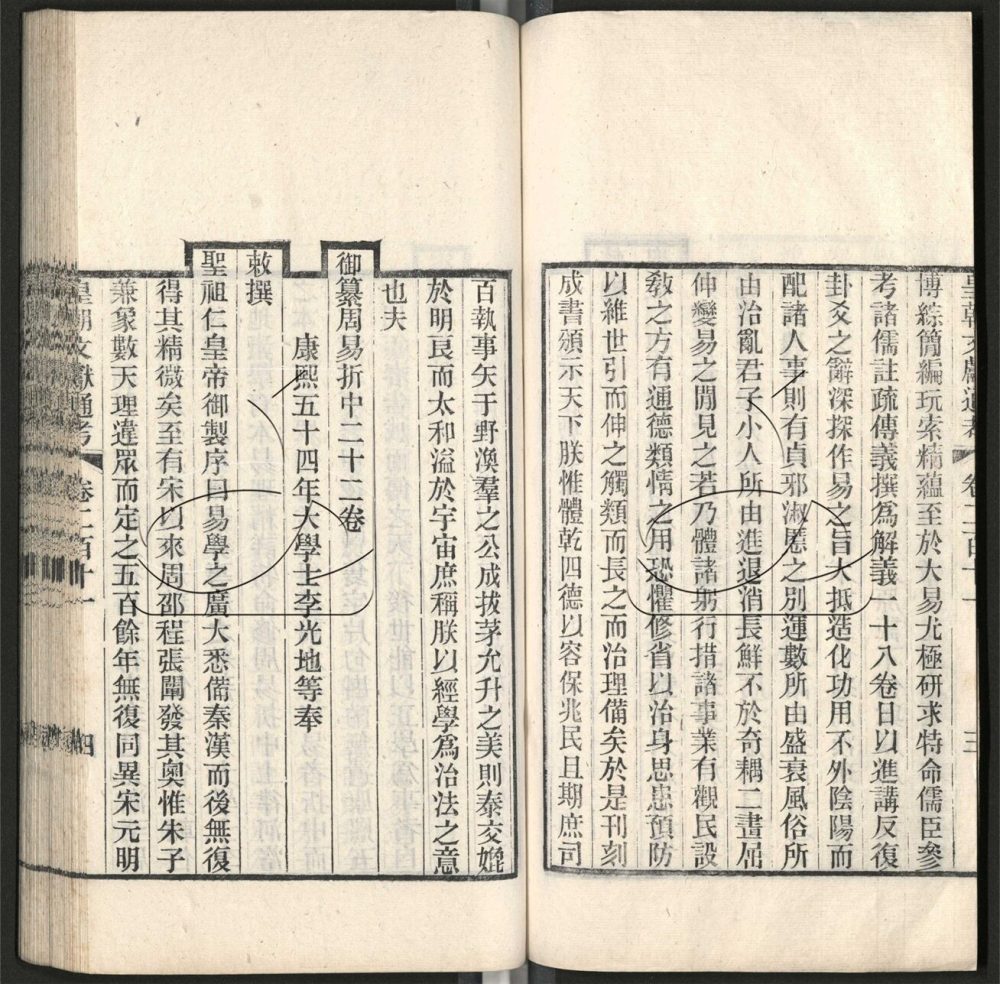 皇朝文獻通考 卷二百十一 三
博綜簡編玩索精蘊至於大易尤極研求特命儒臣參
考諸儒註疏傳義撰爲解義一十八卷日以進講反復
卦爻之辭深探作易之旨大抵造化功用不外陰陽而
配諸人事則有貞邪淑慝之別運數所由盛衰風俗所
由治亂君子小人所由進退消長鮮不於奇耦二畫屈
伸變易之閒見之若乃體諸躬行措諸事業有觀民設
敎之方有通德類情之用恐懼修省以治身思患預防
以維世引而伸之觸類而長之而治理備矣於是刊刻
成書頒示天下朕惟體乾四德以容保兆民且期庶司
百執事矢于野渙羣之公成拔茅允升之美則泰交媲
於明良而太和溢於宇宙庶稱朕以經學爲治法之意
也夫
御纂周易折中二十二卷
康熙五十四年大學士李光地等奉
敕撰
聖祖仁皇帝御製序曰易學之廣大悉備秦漢而後無復
得其精微矣至有宋以來周邵程張闡發其奧惟朱子
兼象數天理違眾而定之五百餘年無復同異宋元明
皇朝文獻通考 卷二百十一 四